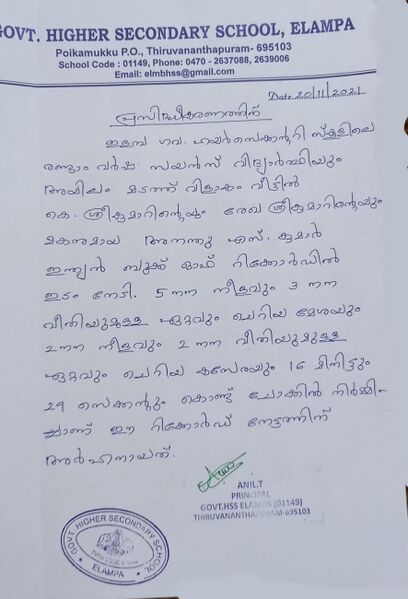 GOVT. HIGHER SECONDARY SCHOOL, ELAMPA
Poikamukku P.O., Thiruvananthapuram- 695103
School Code : 01149, Phone: 0470 - 2637088, 2639006
Email: elmbhss@gmail.com
Date 20/11/2021
പ്രസിദ്ധീകരണത്തിന്
ഇളമ്പ ഗവ. ഹയർസെക്കന്ററി സ്കൂളിലെ
രണ്ടാം വർഷ സയൻസ് വിദ്യാർത്ഥിയും
അയിലം മടത്ത് വിളാകം വീട്ടിൽ
കെ. ശ്രീകുമാറിന്റെയും രേഖ ശ്രീകുമാറിന്റെയും
മകനുമായ അനന്തു എസ്. കുമാർ
ഇന്ത്യൻ ബുക്ക് ഓഫ് റിക്കോർഡിൽ
ഇടം നേടി. 5 നന നീളവും 3 നന
വീതിയുമുള്ള ഏറ്റവും ചെറിയ മേശയും
2 നന നീളവും 2 നന വീതിയുമുള്ള
ഏറ്റവും ചെറിയ കസേരയും 16 മിനിട്ടും
29 സെക്കന്റും കൊണ്ട് ചോക്കിൽ നിർമ്മി-
ച്ചാണ് ഈ റിക്കോർഡ് നേട്ടത്തിന്
അർഹനായത്.
ANIL.T
PRINCIPAL
GOVT.HSS ELAMPA (01149)
THIRUVANANTHAPURAM-695103
GOVT. HIGHER SECONDARY SCHOOL
ELAMPA